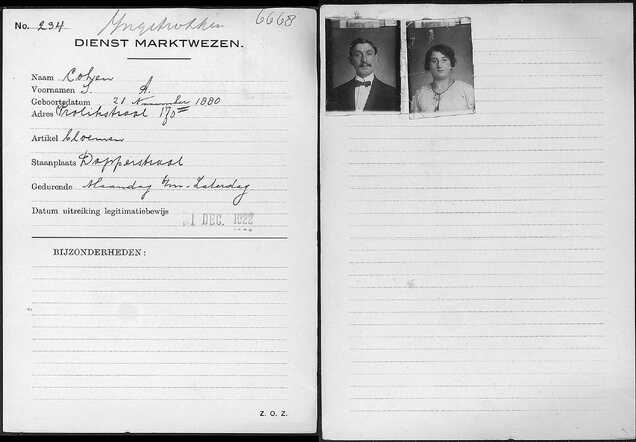 No. 234 Ingetrokken 6668
DIENST MARKTWEZEN.
Naam Cohen
Voornamen S. A.
Geboortedatum 21 November 1880
Adres 170
Artikel Bloemen
Staanplaats Dapperstraat
Gedurende Maandag t/m Zaterdag
Datum uitreiking legitimatiebewijs 1 DEC. 1922
BIJZONDERHEDEN:
Z. O. Z.